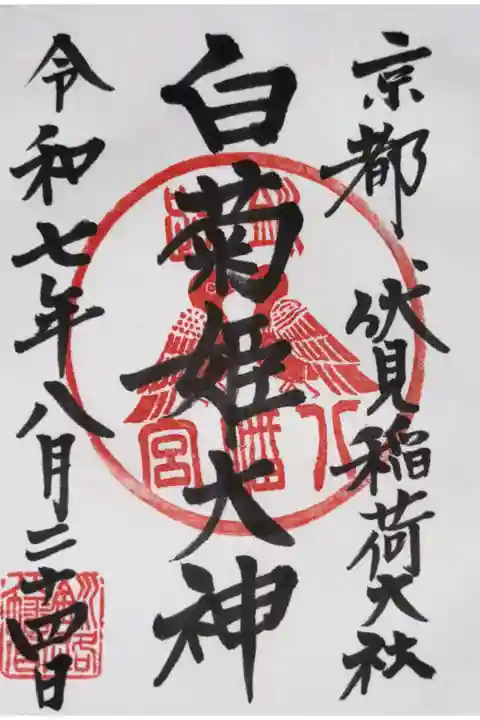 京都伏見稲荷大社
白菊姫大神
令和七年八月二十四日
八幡宮